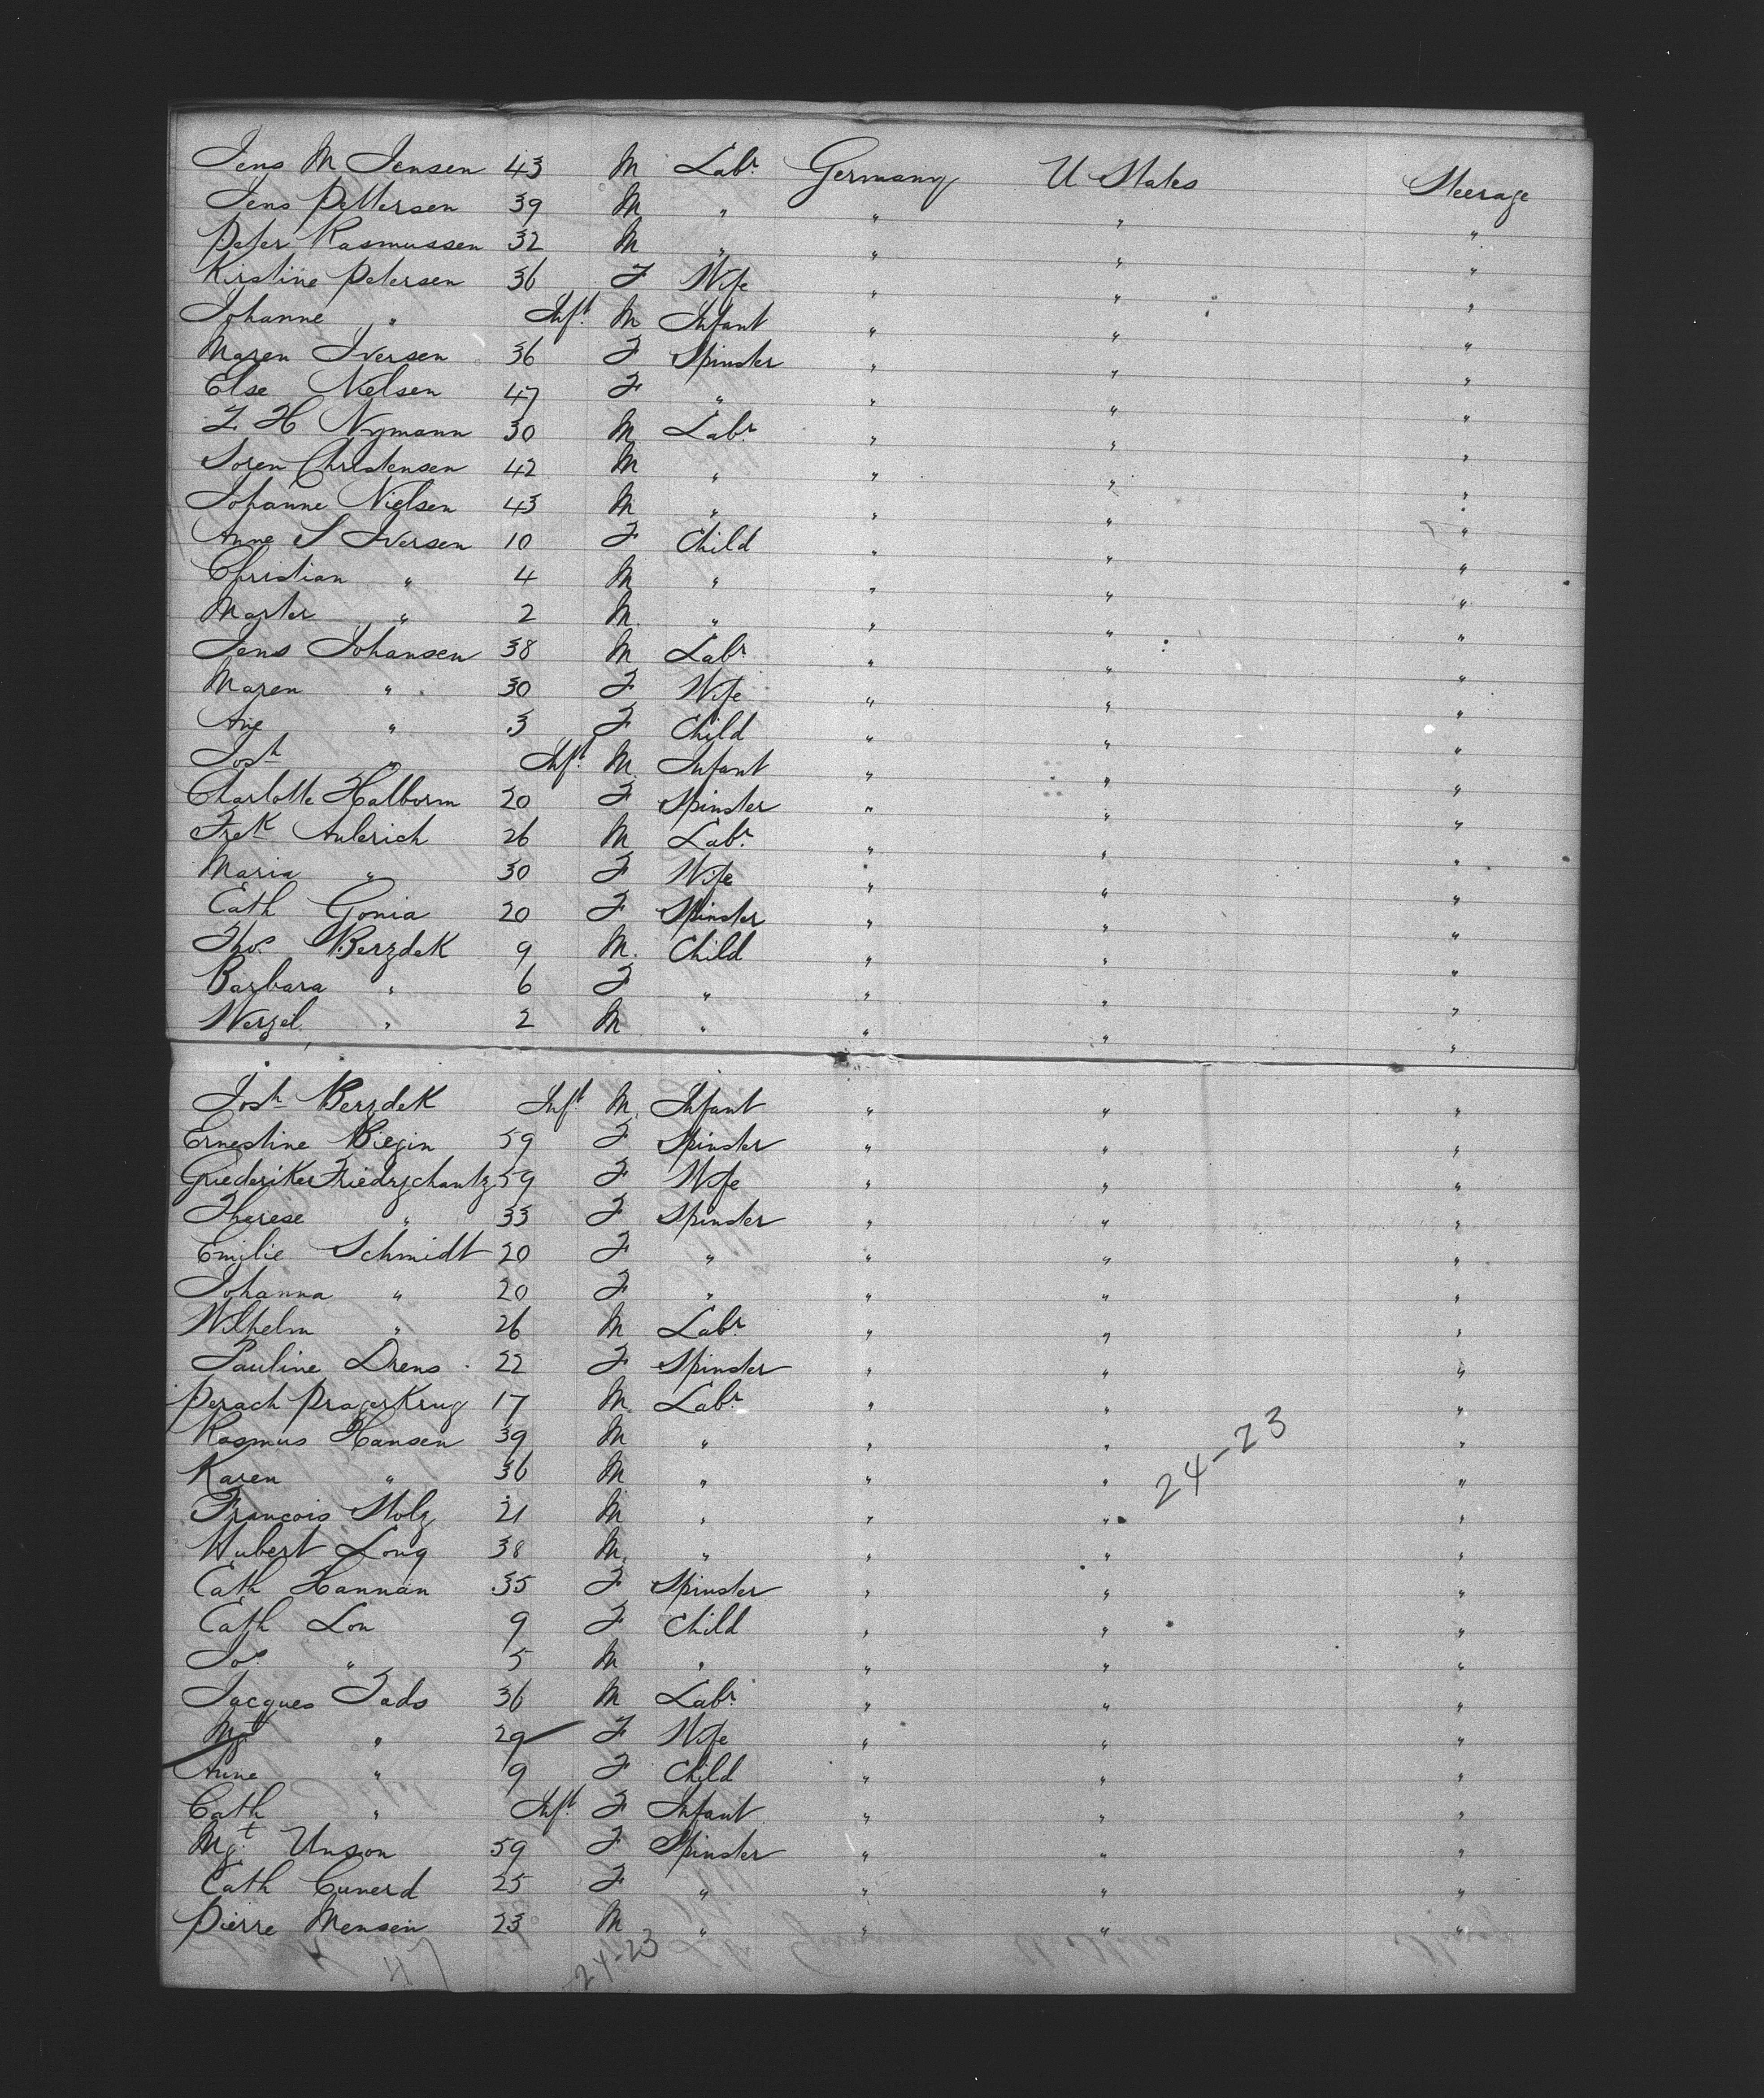 Jens M Jensen 43 M Labr. Germany U States Steerage
Jens Pettersen 39 M " " " "
Peter Rasmussen 32 M " " " "
Kirstine Petersen 36 F Wife " " "
Johanne " Inft. M Infant " " "
Maren Iversen 36 F Spinster " " "
Else Nielsen 47 F " " " "
F. H Nymann 30 M Labr. " " "
Soren Christensen 42 M " " " "
Johanne Nielsen 43 M " " " "
Anne S Iversen 10 F Child " " "
Christian " 4 M " " " "
Marter " 2 M. " " " "
Jens Johansen 38 M Labr. " " "
Maren " 30 F Wife " " "
Ane " 3 F Child " " "
Josh " Inft. M. Infant " " "
Charlotte Halborm 20 F Spinster " " "
Fredk Aulerich 26 M Labr. " " "
Maria " 30 F Wife " " "
Cath Gonia 20 F Spinster " " "
Thos Berzdek 9 M. Child " " "
Barbara " 6 F " " " "
Werzel " 2 M " " " "
Josh Berzdek Inft. M. Infant " " "
Ernestine Biegin 59 F Spinster " " "
Griederiker Friedrzchantz 59 F Wife " " "
Therese " 33 F Spinster " " "
Emilie Schmidt 20 F " " " "
Johanna " 20 F " " " "
Wilhelm " 26 M Labr. " " "
Pauline Drens 22 F Spinster " " "
Perach Pragerkrug 17 M. Labr. " " "
Rasmus Hansen 39 M " " " "
Karen " 36 M " " " "
24-23
Francois Stolz 21 M " " " "
Hubert Long 38 M. " " " "
Cath Hannan 35 F Spinster " " "
Cath Lon 9 F Child " " "
Jos. " 5 M " " " "
Jacques Tads 36 M Labr. " " "
Mgt " 29 F Wife " " "
Anne " 9 F Child " " "
Cath " Inft. F Infant " " "
Mgt. Unson 59 F Spinster " " "
Cath Cunerd 25 F " " " "
Pierre Mensen 23 M " " " "
47 24-23